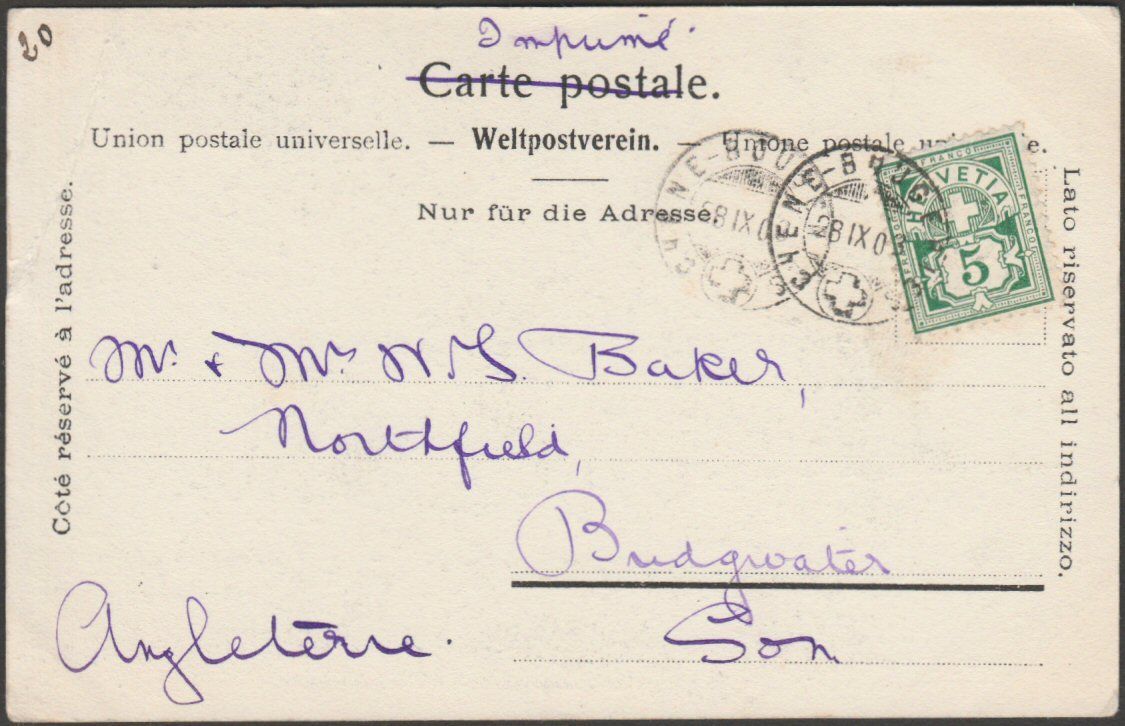 20
Imprimé
Carte postale.
Union postale universelle. — Weltpostverein. — Unione postale
Nur für die Adresse.
Côté réservé à l'adresse.
Lato riservato all indirizzo.
CHÊNE-BOUG
IX.0
FRANCO
HELVETIA
FRANCO
5
Mr. & Mrs. W. S. Baker,
Northfield,
Bridgwater
Som
Angleterre.